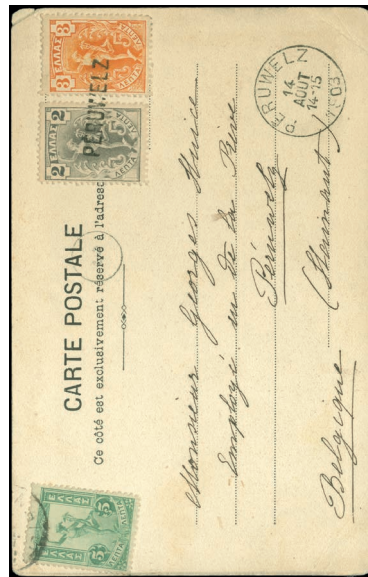 CARTE POSTALE
Ce côté est exclusivement réservé à l'adresse
ΕΛΛΑΣ
3 3
ΛΕΠΤΑ
ΕΛΛΑΣ
2 2
ΛΕΠΤΑ
PERUWELZ
ΕΛΛΑΣ
5 5
ΛΕΠΤΑ
PERUWELZ
14
AOUT
14-15
1903
Monsieur Georges
Employé rue de la
Péruwelz
(Hainaut)
Belgique